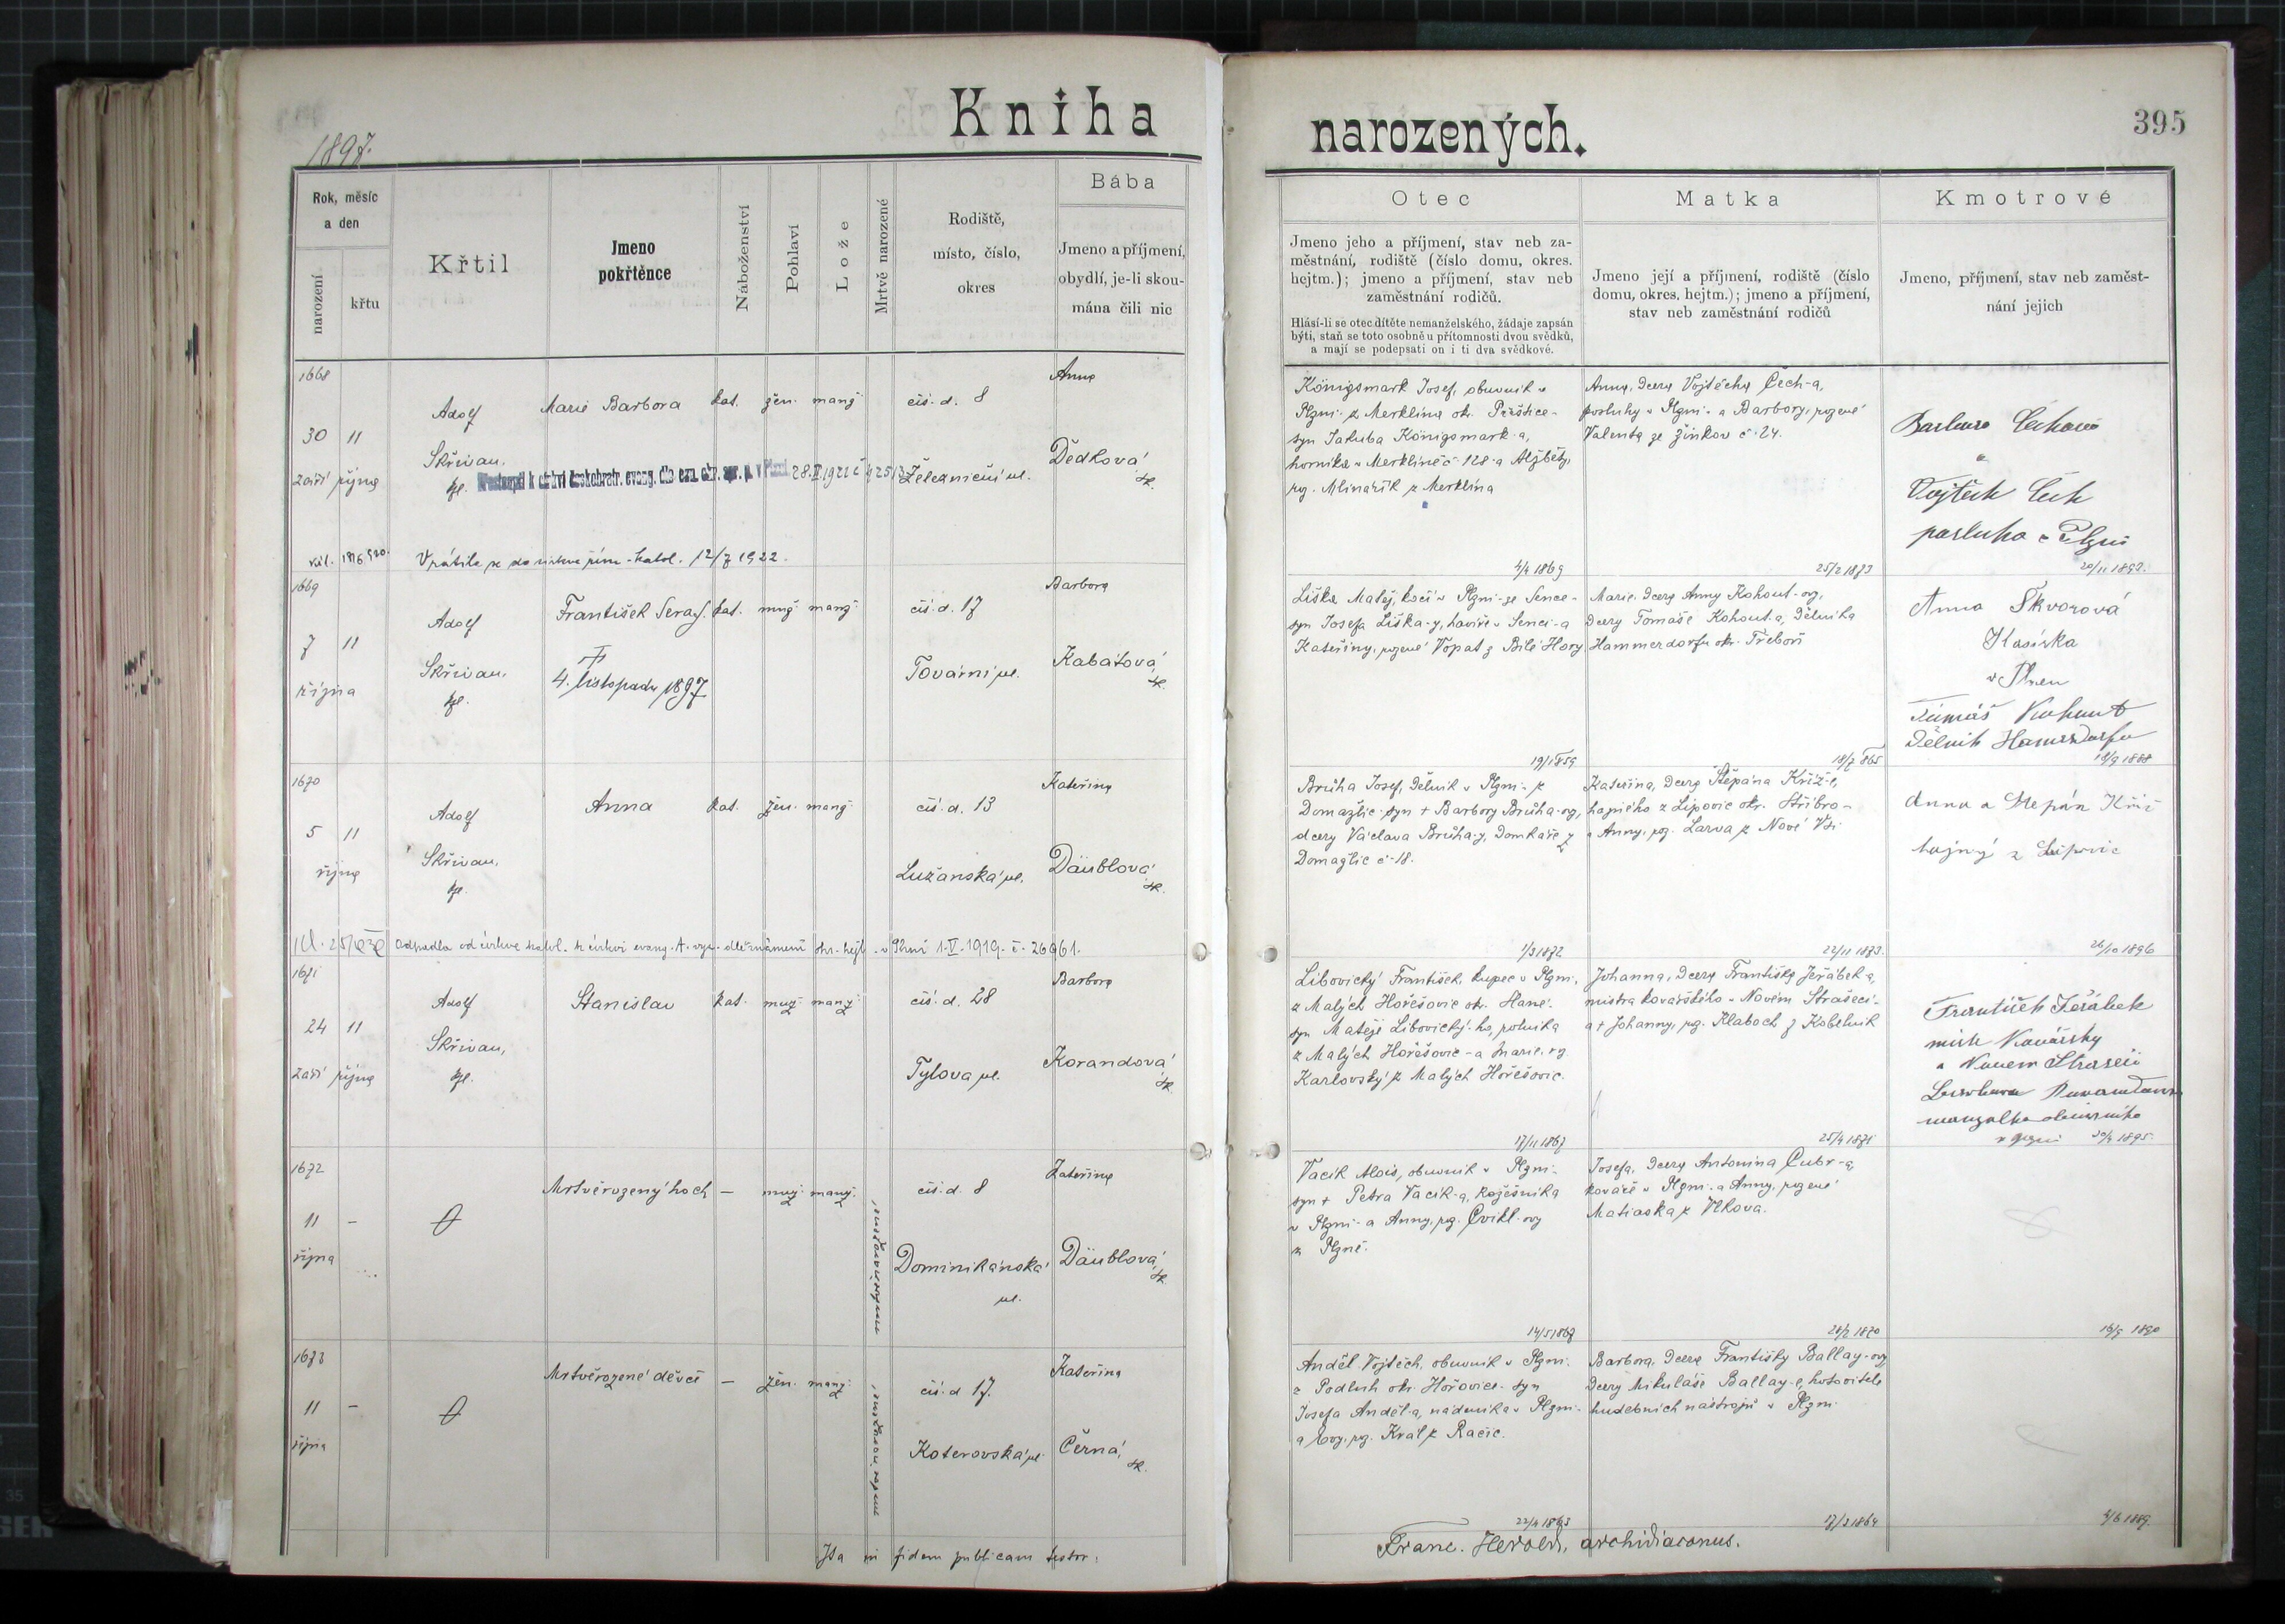 Kniha
1897.
Rok, měsíc
a den
narození
křtu
Křtil
Jmeno
pokřtěnce
Náboženství
Pohlaví
Lože
Mrtvě narozené
Rodiště,
místo, číslo,
okres
Bába
Jmeno a příjmení,
obydlí, je-li skou-
mána čili nic
1668
30 11
září října
Adolf
Skřivan,
kpl.
Marie Barbora
kat. žen. manž.
čís. d. 8
Železniční ul.
Anna
Dědková
zk.
k církvi českobratr. evang. dle 28. 1921
Vrátila se do církve řím.-katol. 12/7 1922.
1669
7 11
října
Adolf
Skřivan,
kpl.
František Seraf.
†
4. listopadu 1897
kat. muž. manž.
čís. d. 17
Tovární ul.
Barbora
Kabátová
zk.
1670
5 11
října
Adolf
Skřivan,
kpl.
Anna
kat. žen. manž.
čís. d. 13
Lužanská ul.
Kateřina
Däublová
zk.
odpadla od církve katol. k církvi evang. A. vyz. dle oznámení okr. hejt. v Plzni 1.V.1919. č. 26961.
1671
24 11
září října
Adolf
Skřivan,
kpl.
Stanislav
kat. muž. manž.
čís. d. 28
Tylova ul.
Barbora
Korandová
zk.
1672
11 –
října
Mrtvěrozený hoch
– muž. manž.
čís. d. 8
Dominikánská
ul.
Kateřina
Däublová,
zk.
1673
11 –
října
Mrtvěrozené děvče
– žen. manž.
čís. d. 17.
Koterovská ul.
Kateřina
Černá,
zk.
Ita in fidem publicam testor:
narozených.
395
Otec
Jmeno jeho a příjmení, stav neb za-
městnání, rodiště (číslo domu, okres.
hejtm.); jmeno a příjmení, stav neb
zaměstnání rodičů.
Hlásí-li se otec dítěte nemanželského, žádaje zapsán
býti, staň se toto osobně u přítomnosti dvou svědků,
a mají se podepsati on i ti dva svědkové.
Matka
Jmeno její a příjmení, rodiště (číslo
domu, okres. hejtm.); jmeno a příjmení,
stav neb zaměstnání rodičů
Kmotrové
Jmeno, příjmení, stav neb zaměst-
nání jejich
Königsmark Josef, obuvník v
Plzni z Merklína okr. Přeštice-
syn Jakuba Königsmark-a,
horníka v Merklíně č. 128 a Alžběty,
roz. Mlinařík z Merklína
4/4 1869
Anna, dcera Vojtěcha Čech-a,
posluhy v Plzni a Barbory, rozené
Valenta ze Žinkov č. 24.
25/2 1873
Barbora Čechová
a
Vojtěch Čech
posluha v Plzni
20/11 1893.
Liška Matěj, kočí v Plzni ze Sence-
syn Josefa Liška-y, havíře v Senci a
Kateřiny, rozené Vopat z Bílé Hory
19/1 1859
Marie, dcera Anny Kohout-ovy,
dcery Tomáše Kohout-a, dělníka
Hammerdorfu okr. Třeboň
18/7 865
Anna Škvorová
v Plzen
Tomáš Kohout
Dělník
18/9 1888
Brůha Josef, dělník v Plzni z
Domažlic syn † Barbory Brůha-ovy,
dcery Václava Brůha-y, domkáře z
Domažlic č. 18.
1/3 1872
Kateřina, dcera Štěpána Kříž-e,
hajného z Lipovic okr. Stříbro-
a Anny, roz. Larva z Nové Vsi
22/11 1873.
Anna a Štěpán Kříž
hajný z Lipovic
26/10 1896
Libovický František, kupec v Plzni,
z Malých Hořešovic okr. Slané.
syn Matěje Libovický-ho, rolníka
z Malých Hořešovic a Marie, roz.
Karlovský z Malých Hořešovic.
17/11 1867
Johanna, dcera Františka Jeřábek-a,
mistra kovářského v Novém Strašecí-
a † Johanny, roz. Klaboch z Kobelník
25/4 1871
František Jeřábek
mistr Kovářský
v Novém Strašecí
Barbora
manželka obuvníka
v Plzni 30/4 1895.
Vacík Alois, obuvník v Plzni-
syn † Petra Vacík-a, kožešníka
v Plzni a Anny, roz. Cvikl-ovy
z Plzně.
14/5 1867
Josefa, dcera Antonína Cubr-a,
kováře v Plzni a Anny, rozené
Matiaska z Vlkova.
28/2 1870
16/9 1890
Anděl Vojtěch, obuvník v Plzni
z Podluh okr. Hořovice syn
Josefa Anděl-a, nádeníka v Plzni-
a Evy, roz. Král z Račic.
22/4 1863
Barbora, dcera Františky Ballay-ovy
dcery Mikuláše Ballay-e, hotovitele
hudebních nástrojů v Plzni
17/3 1864
4/6 1889.
Franc. Herold, archidiaconus.